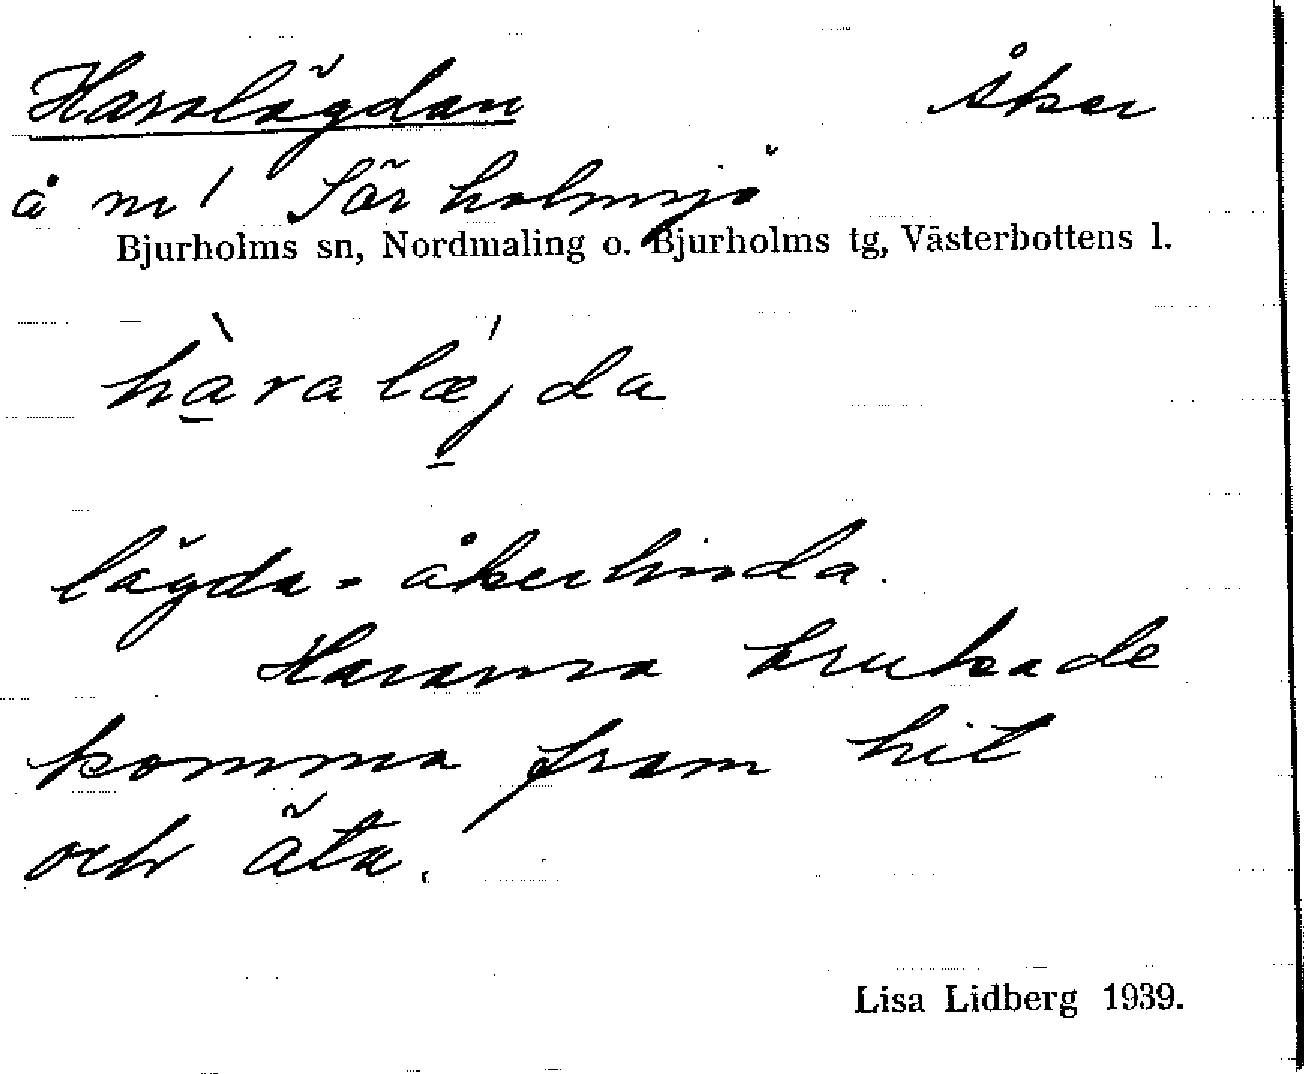 Haralägdan åker
å nr 1 Västerholmsjö
Bjurholms sn, Nordmaling o. Bjurholms tg, Västerbottens l.
hàralǽjda
lägda - åkerlinda.
Hararna brukade
komma fram hit
och äta.
Lisa Lidberg 1939.